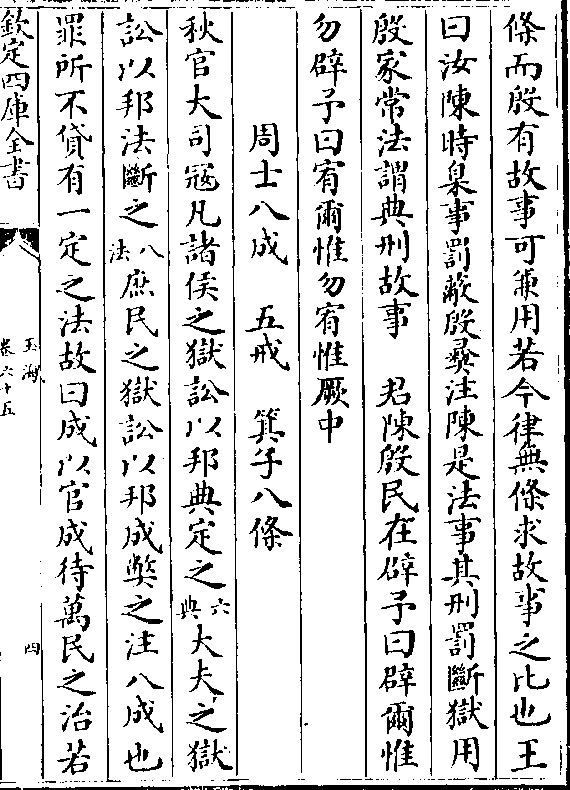 條而殷有故事可兼用若今律無條求故事之比也王
曰汝陳時臬事罰蔽殷彝注陳是法事其刑罰斷獄用
殷家常法謂典刑故事　君陳殷民在辟予曰辟爾惟
勿辟予曰宥爾惟勿宥惟厥中
周士八成　五戒　箕子八條
秋官大司寇凡諸侯之獄訟以邦典定之六典大夫之獄
訟以邦法斷之八法庶民之獄訟以邦成弊之注八成也
罪所不貸有一定之法故曰成以官成待萬民之治若
欽定四庫全書
玉海
卷六十五
四